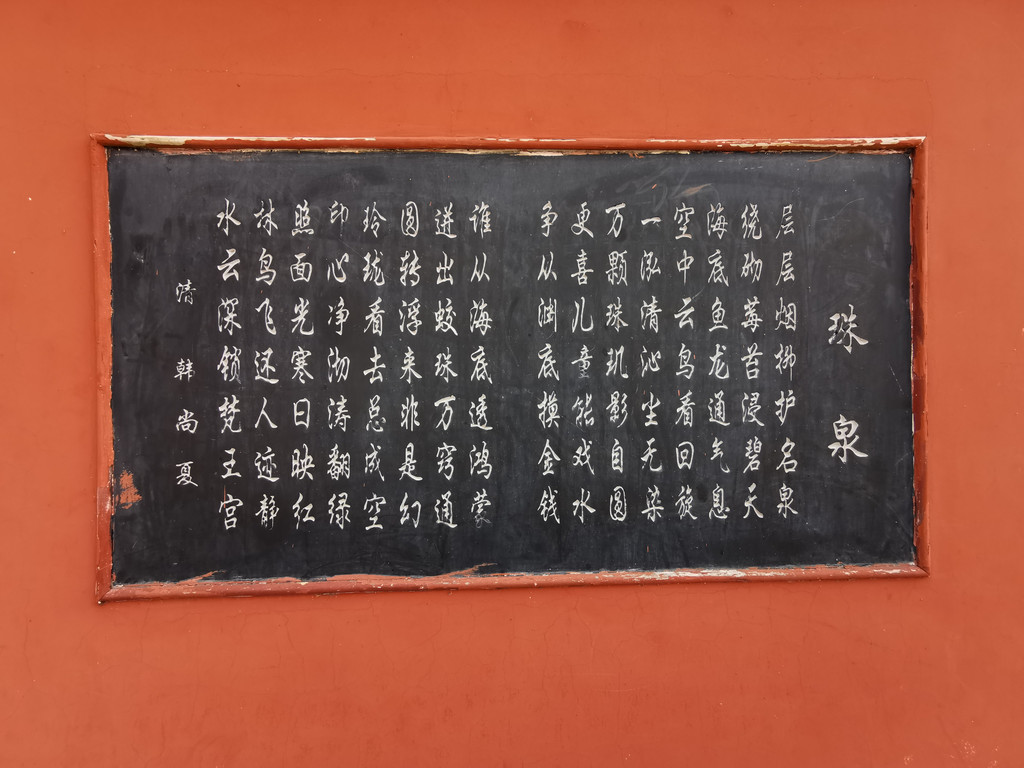 珠泉
层层烟拂护名泉
绕砌莓苔浸碧天
海底鱼龙通气息
空中云鸟看回旋
一泓清沁尘无染
万颗珠玑影自圆
更喜儿童能戏水
争从渊底摸金钱
谁从海底透鸿蒙
迸出蛟珠万窍通
圆转浮来非是幻
玲珑看去总成空
印心净沏涛翻绿
照面光寒日映红
林鸟飞还人迹静
水云深锁梵王宫
清 韩尚夏